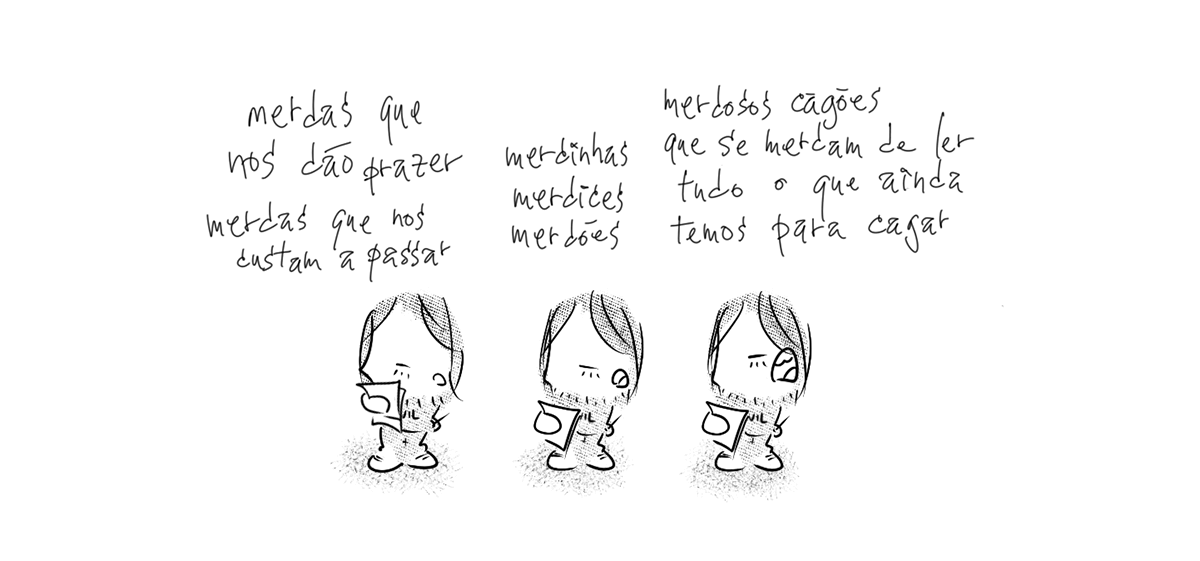 merdas que
nos dão prazer
merdas que nos
custam a passar
merdinhas
merdices
merdões
merdosos cagões
que se merdam de ler
tudo o que ainda
temos para cagar